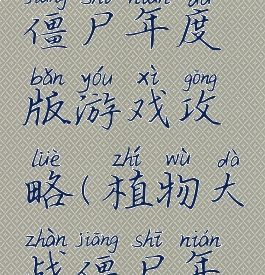 jiāng shī nián dù
僵尸年度
bǎn yóu xì gōng
版游戏攻
lüè zhí wù dà
略(植物大
zhàn jiāng shī nián
战僵尸年